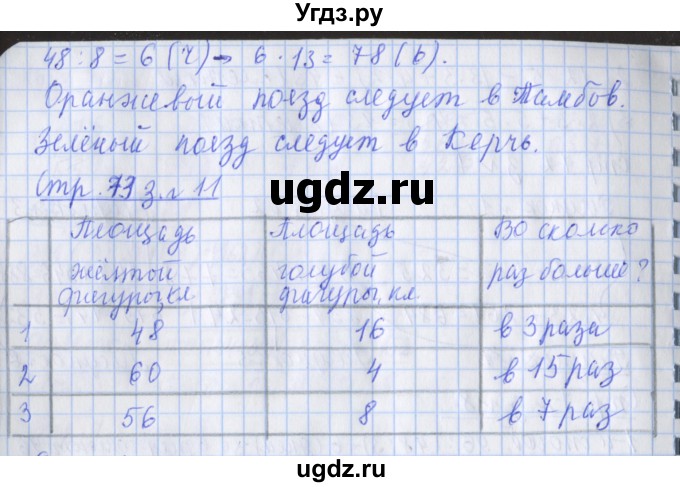 Угдз.ру
48 : 8 = 6 (ч) → 6 · 13 = 78 (в).
Оранжевый поезд следует в Тамбов.
Зелёный поезд следует в Керчь.
ugdz.ru
Стр. 73 з. 11
Площадь жёлтой фигуры, кл | Площадь голубой фигуры, кл. | Во сколько раз больше?
1 | 48 | 16 | в 3 раза
2 | 60 | 4 | в 15 раз
3 | 56 | 8 | в 7 раз
ugdz.ru